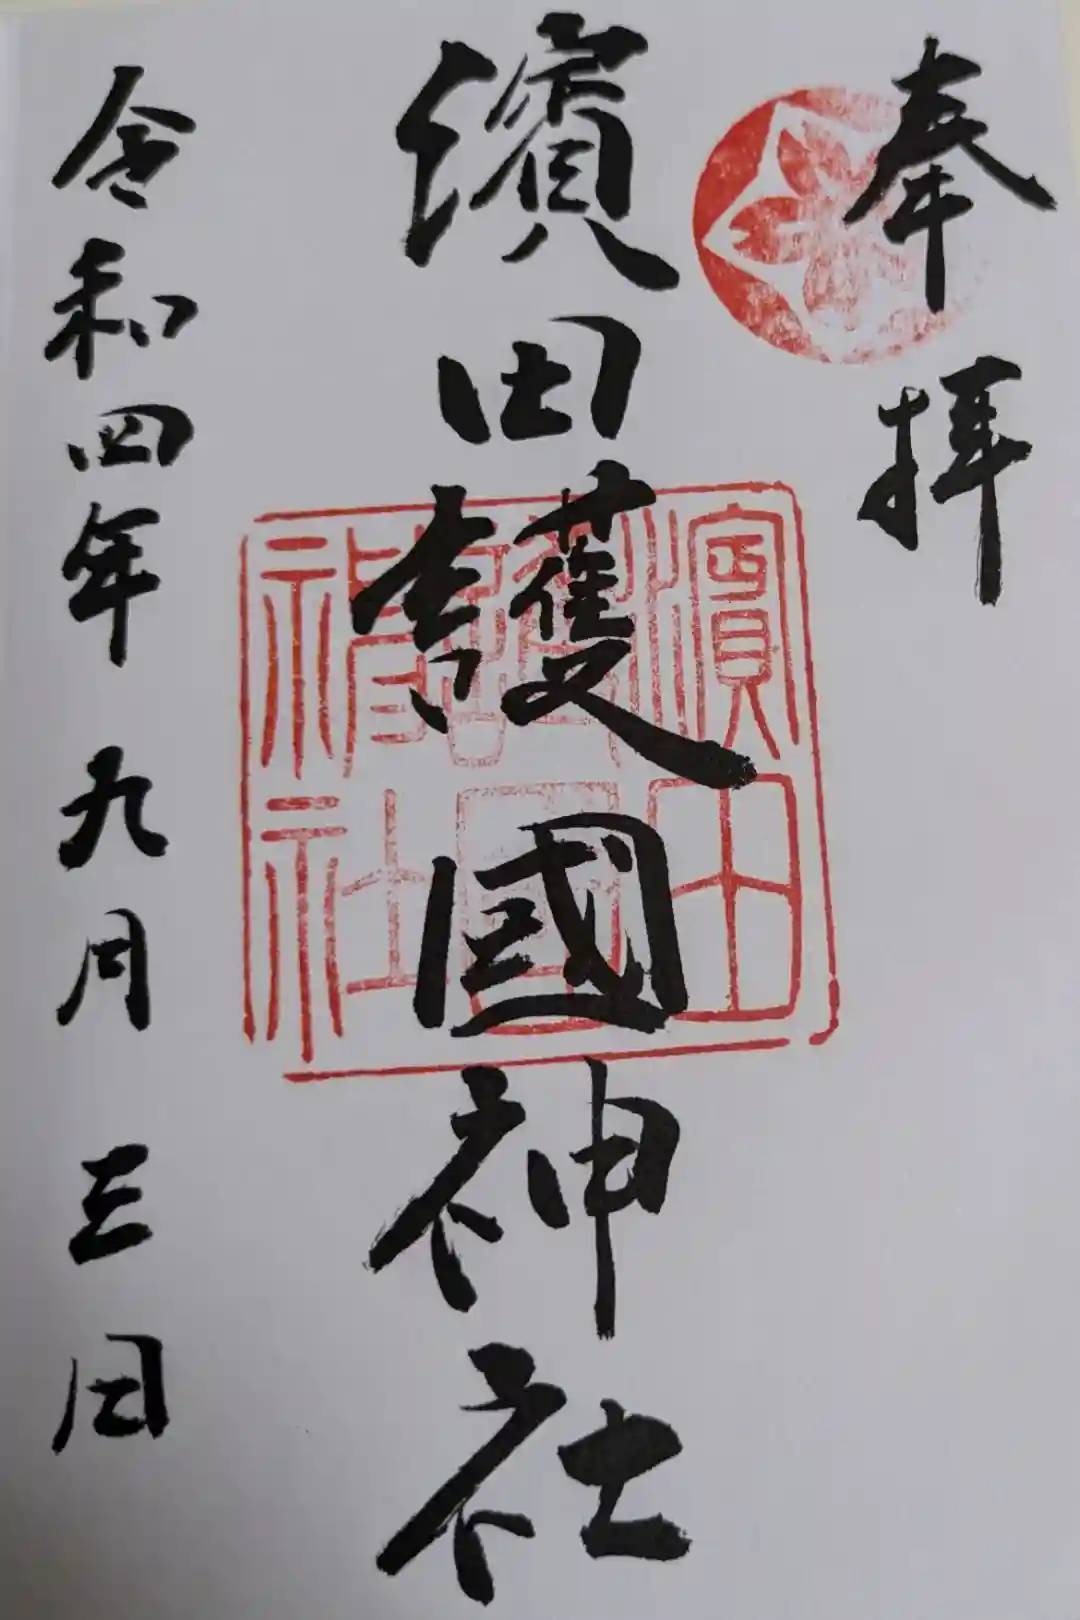 奉拝
濱田護國神社
濱田
護国
神社
令和四年九月三日